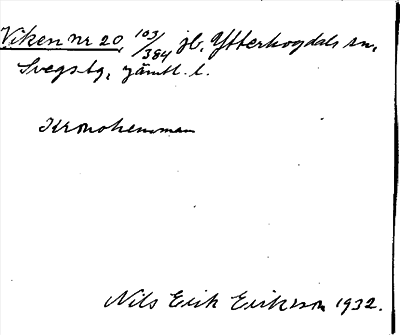 Viken nr 20, 103/384 jb, Ytterhogdals sn,
Svegs tg, Jämtl. l.
Kronolänsman
Nils Erik Eriksson 1932.